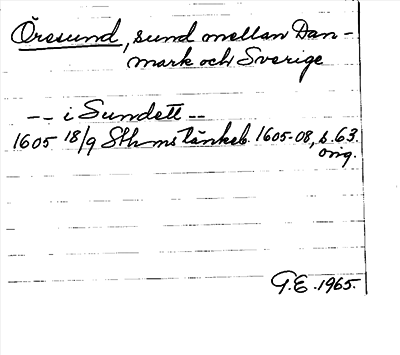 Öresund, sund mellan Dan-
mark och Sverige
-- i Sundett --
1605 18/9 Sthms tänkeb. 1605-08, s. 63.
orig.
G.E. 1965.